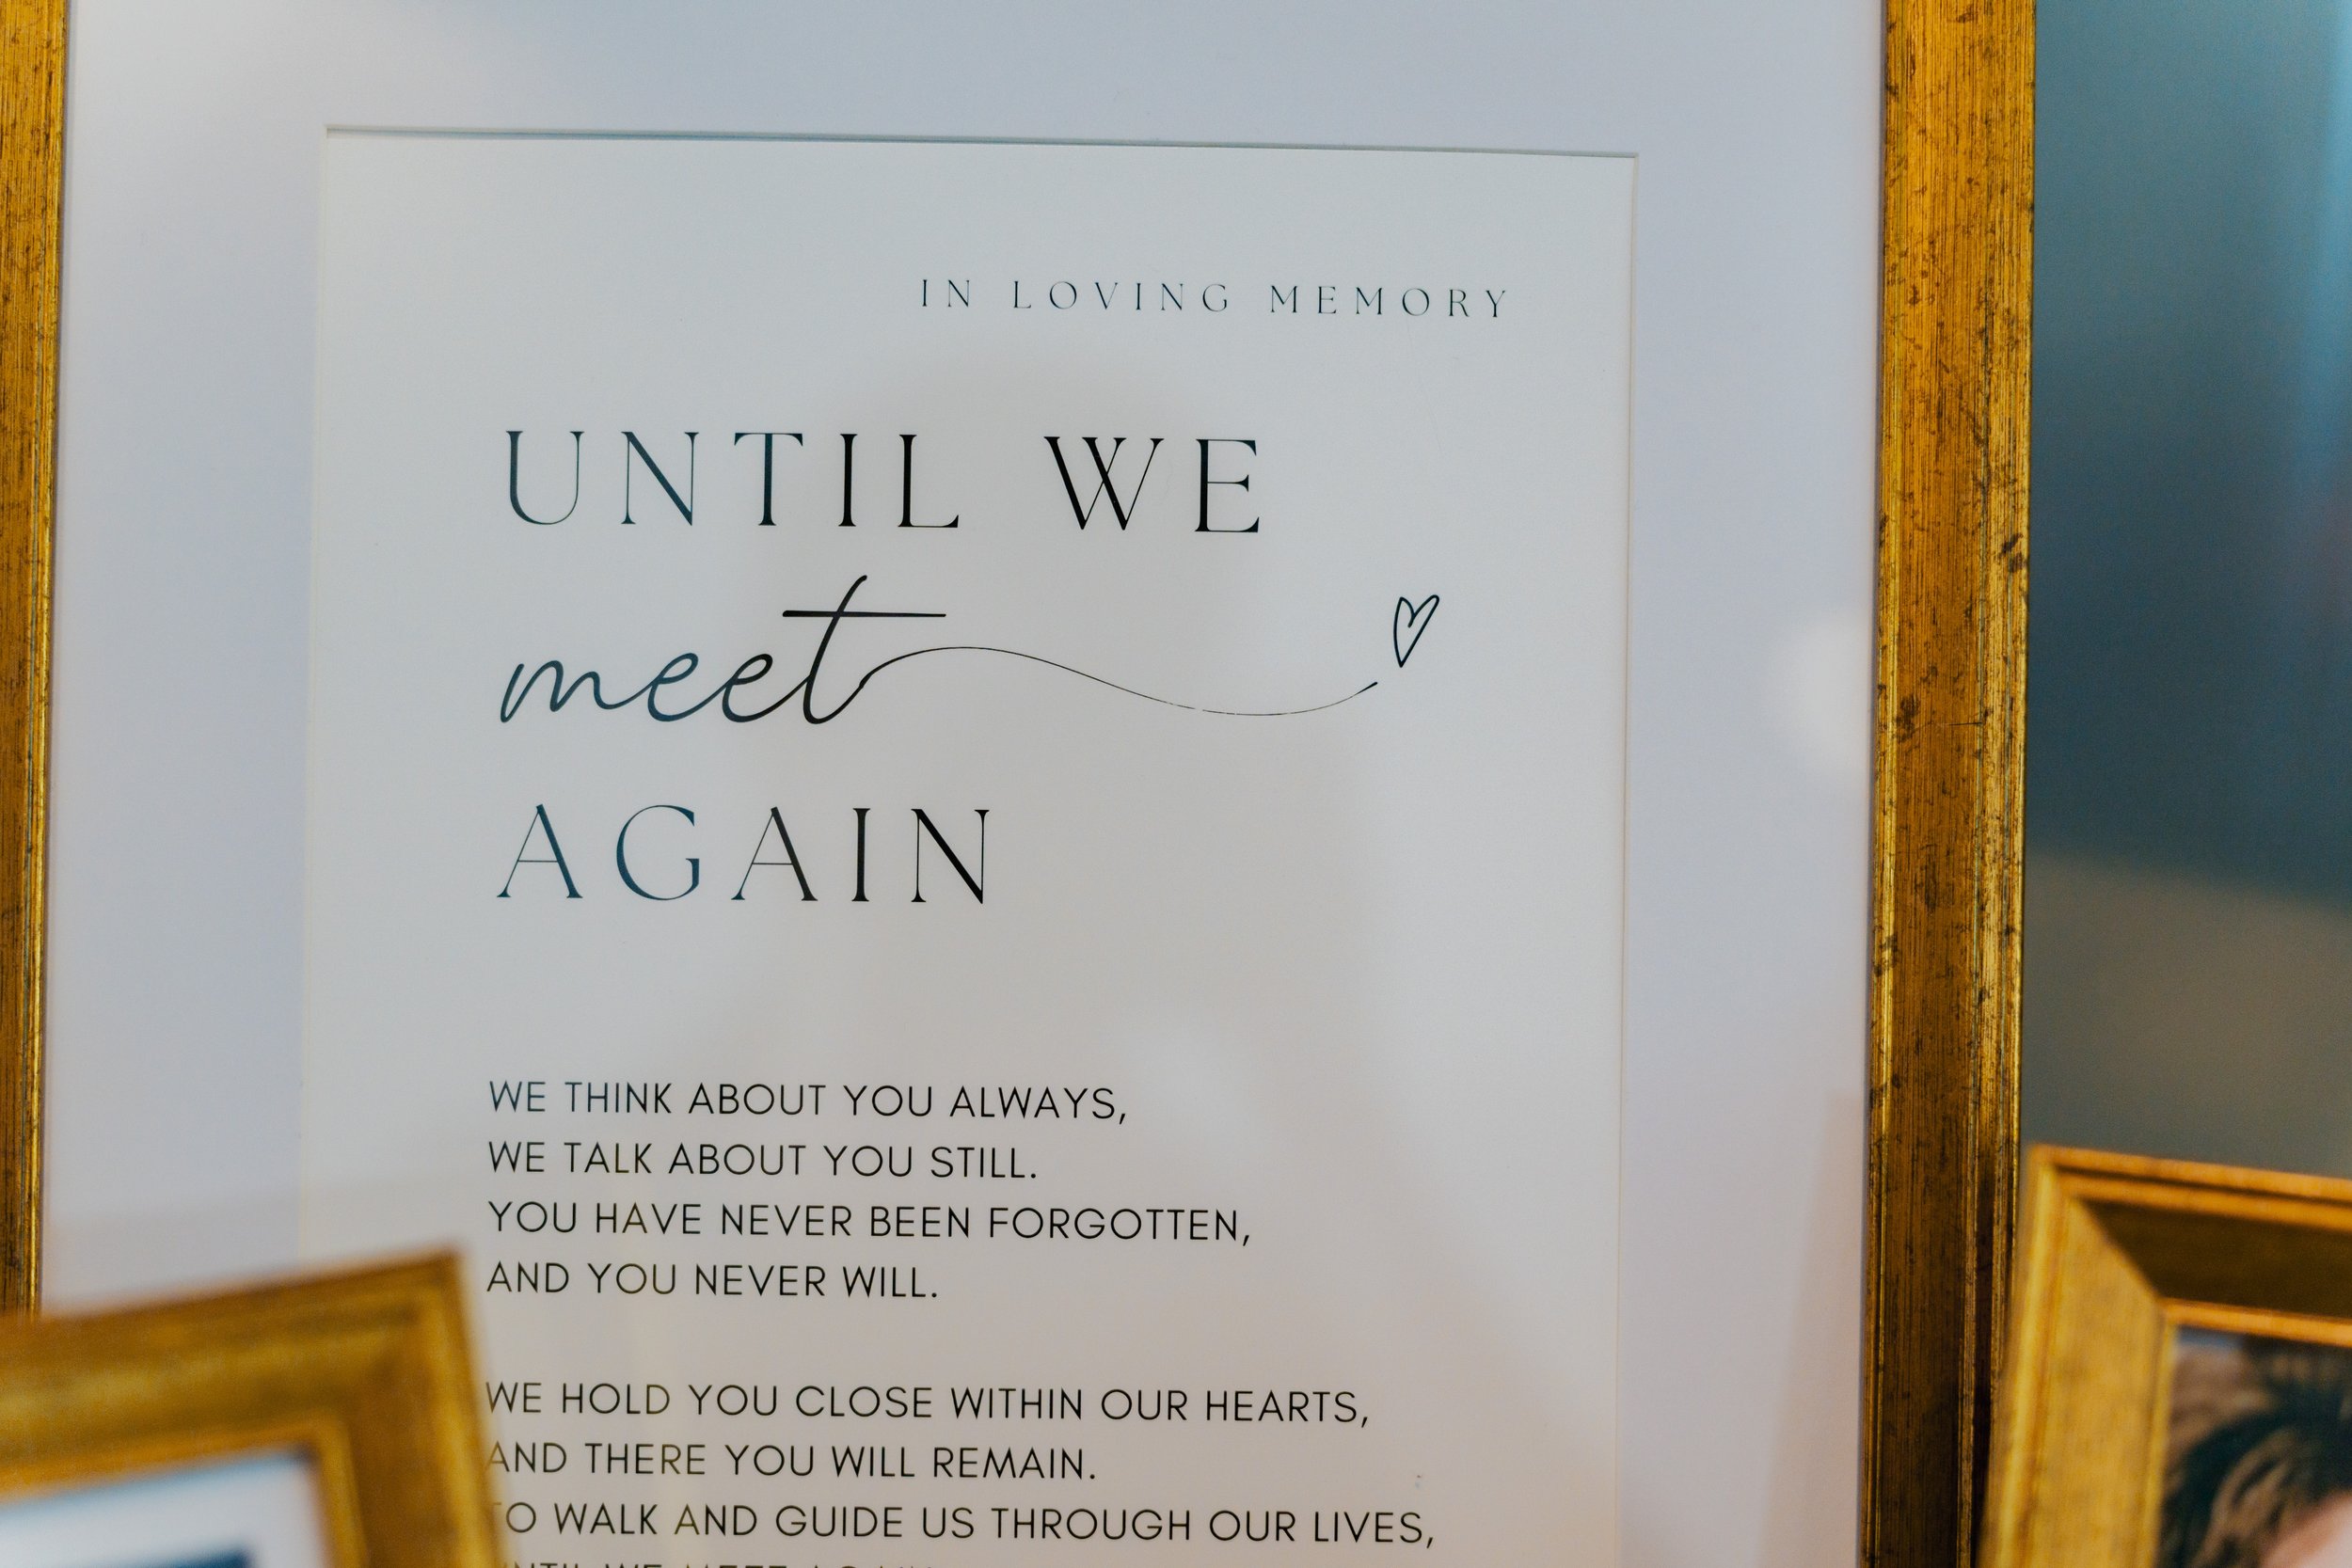 IN LOVING MEMORY
UNTIL WE
meet
AGAIN
WE THINK ABOUT YOU ALWAYS,
WE TALK ABOUT YOU STILL.
YOU HAVE NEVER BEEN FORGOTTEN,
AND YOU NEVER WILL.
WE HOLD YOU CLOSE WITHIN OUR HEARTS,
AND THERE YOU WILL REMAIN.
TO WALK AND GUIDE US THROUGH OUR LIVES,
UNTIL WE MEET AGAIN